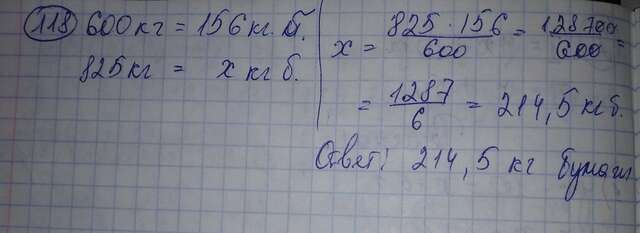 118 600 кг = 156 кг. б.
825 кг = x кг б.
x = 825 · 156 / 600 = 128700 / 600 =
= 1287 / 6 = 214,5 кг б.
Ответ: 214,5 кг бумаги